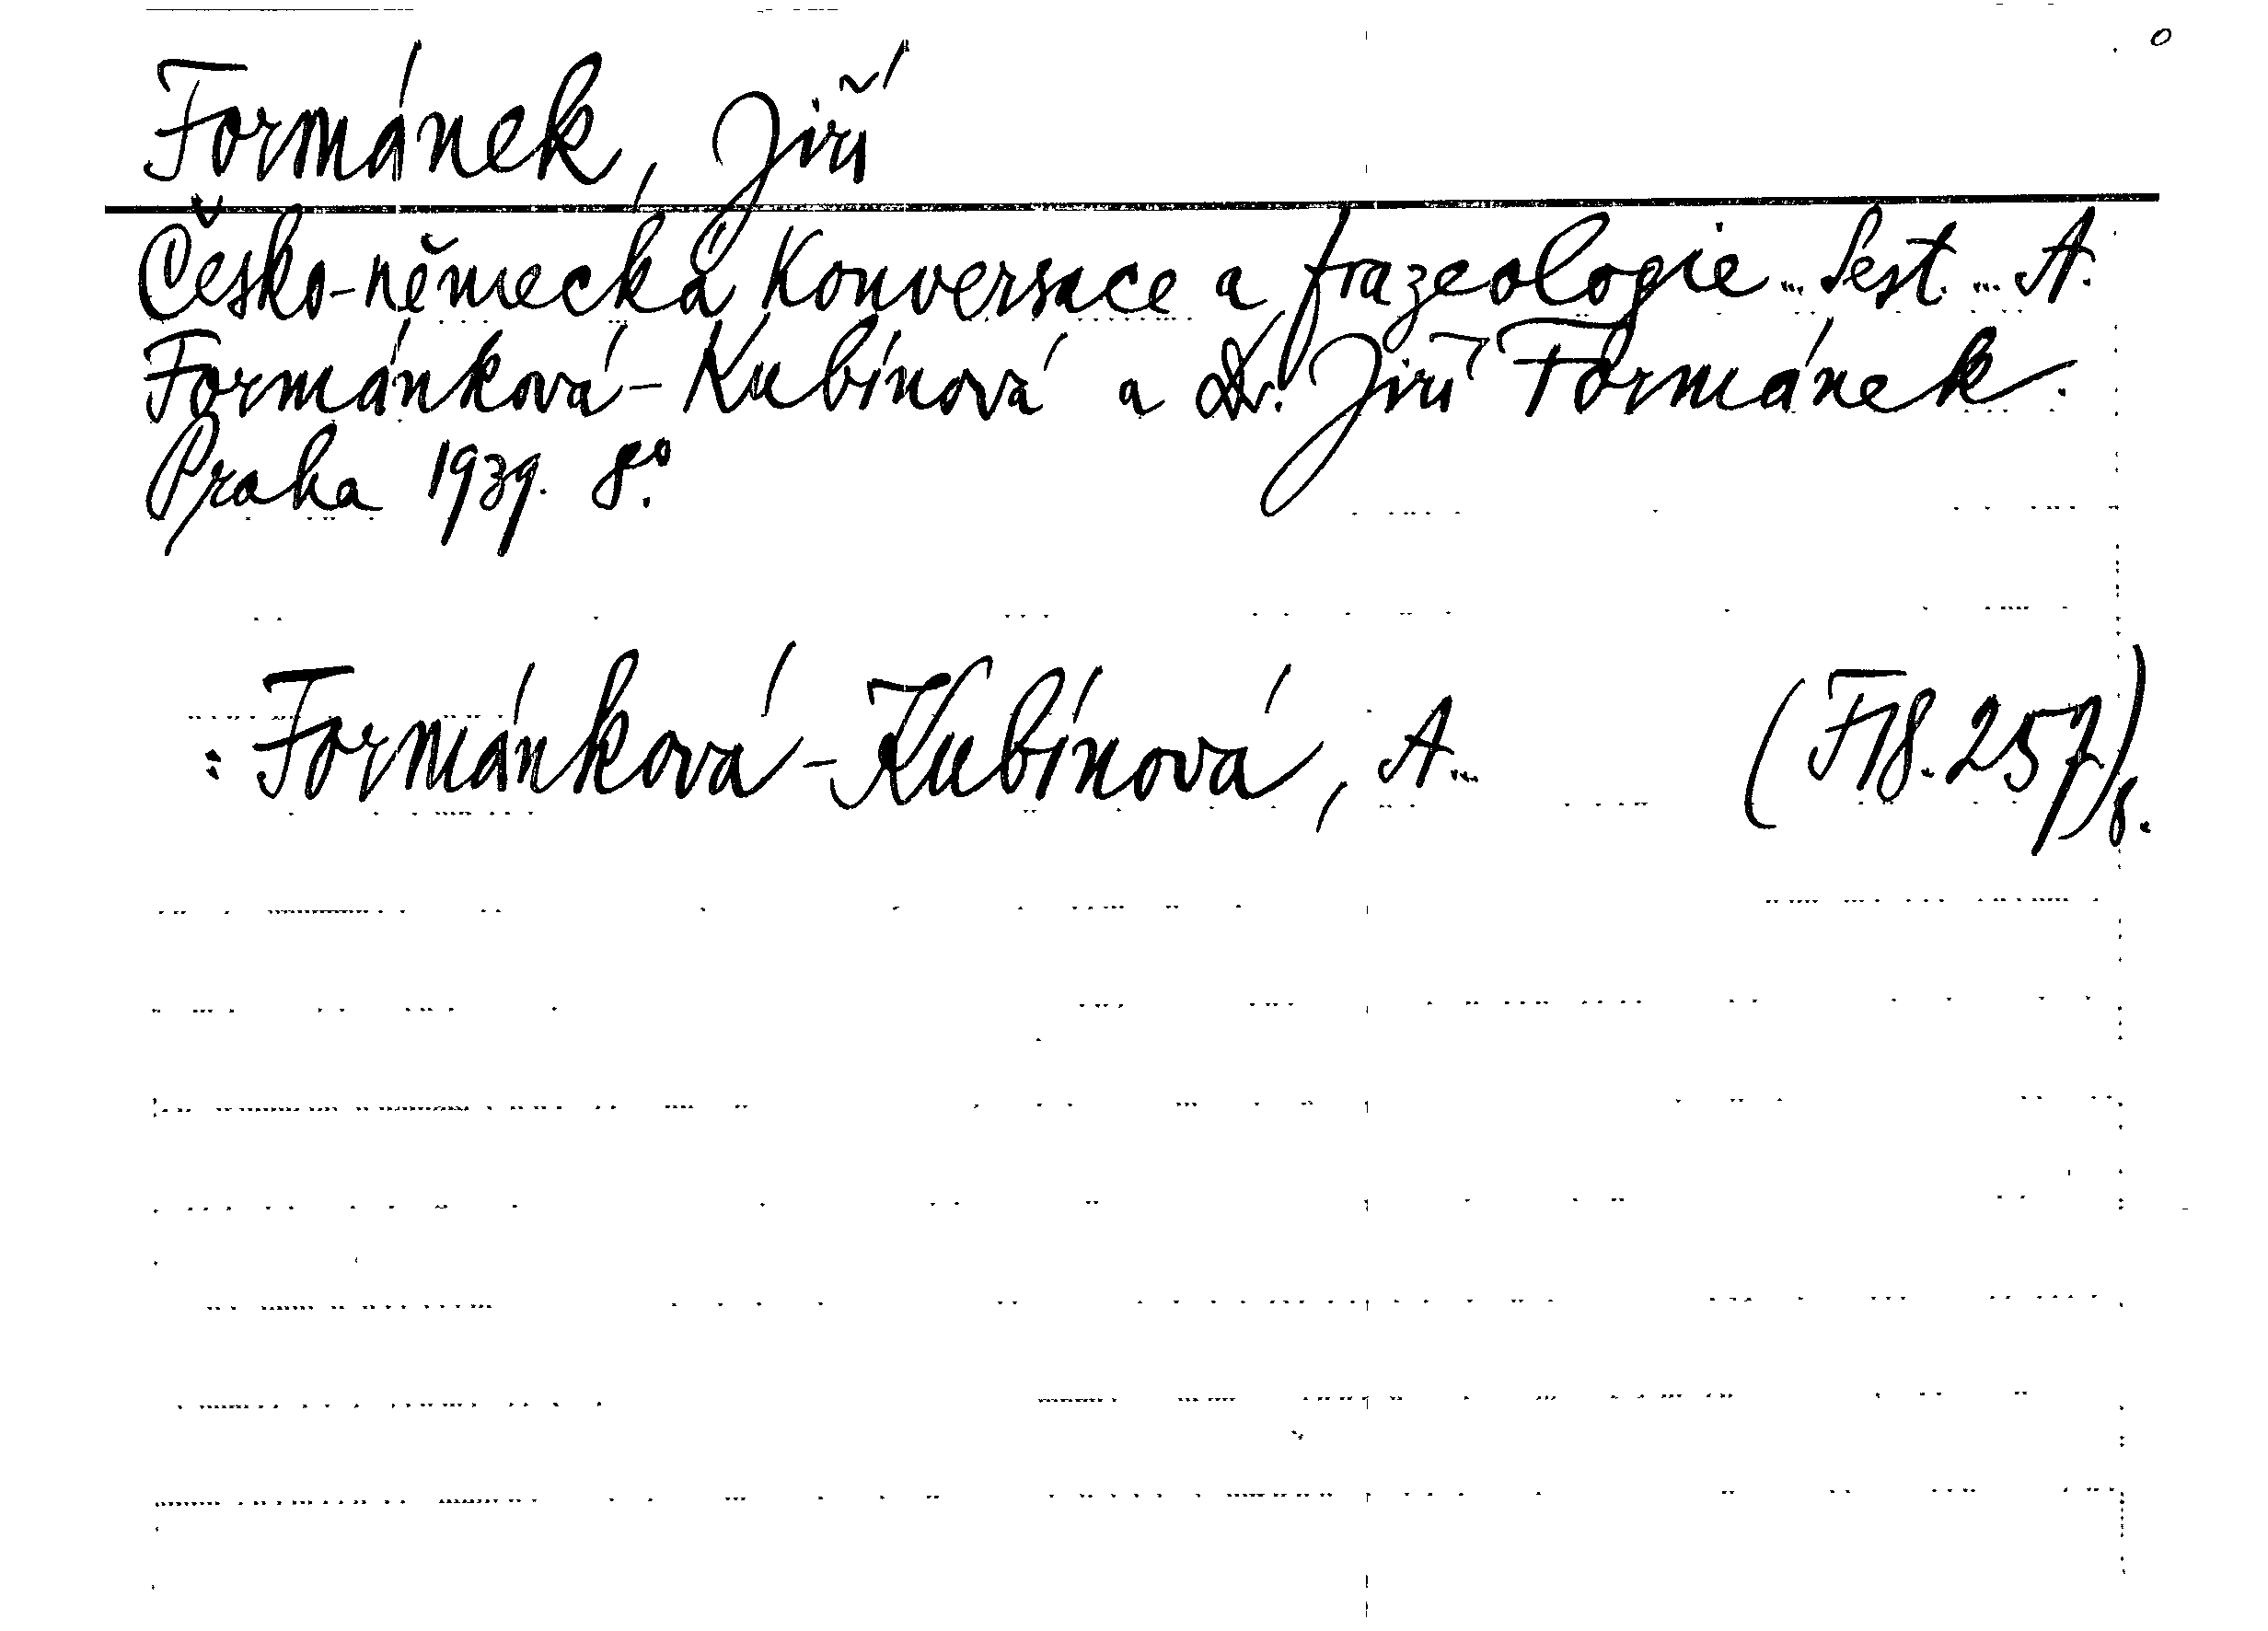 Formánek, Jiří
Česko-německá konversace a frazeologie... Sest. ... A.
Formánková-Kubínová a Dr. Jiří Formánek.
Praha 1939. 8°.
: Formánková-Kubínová, A... (F18.257)